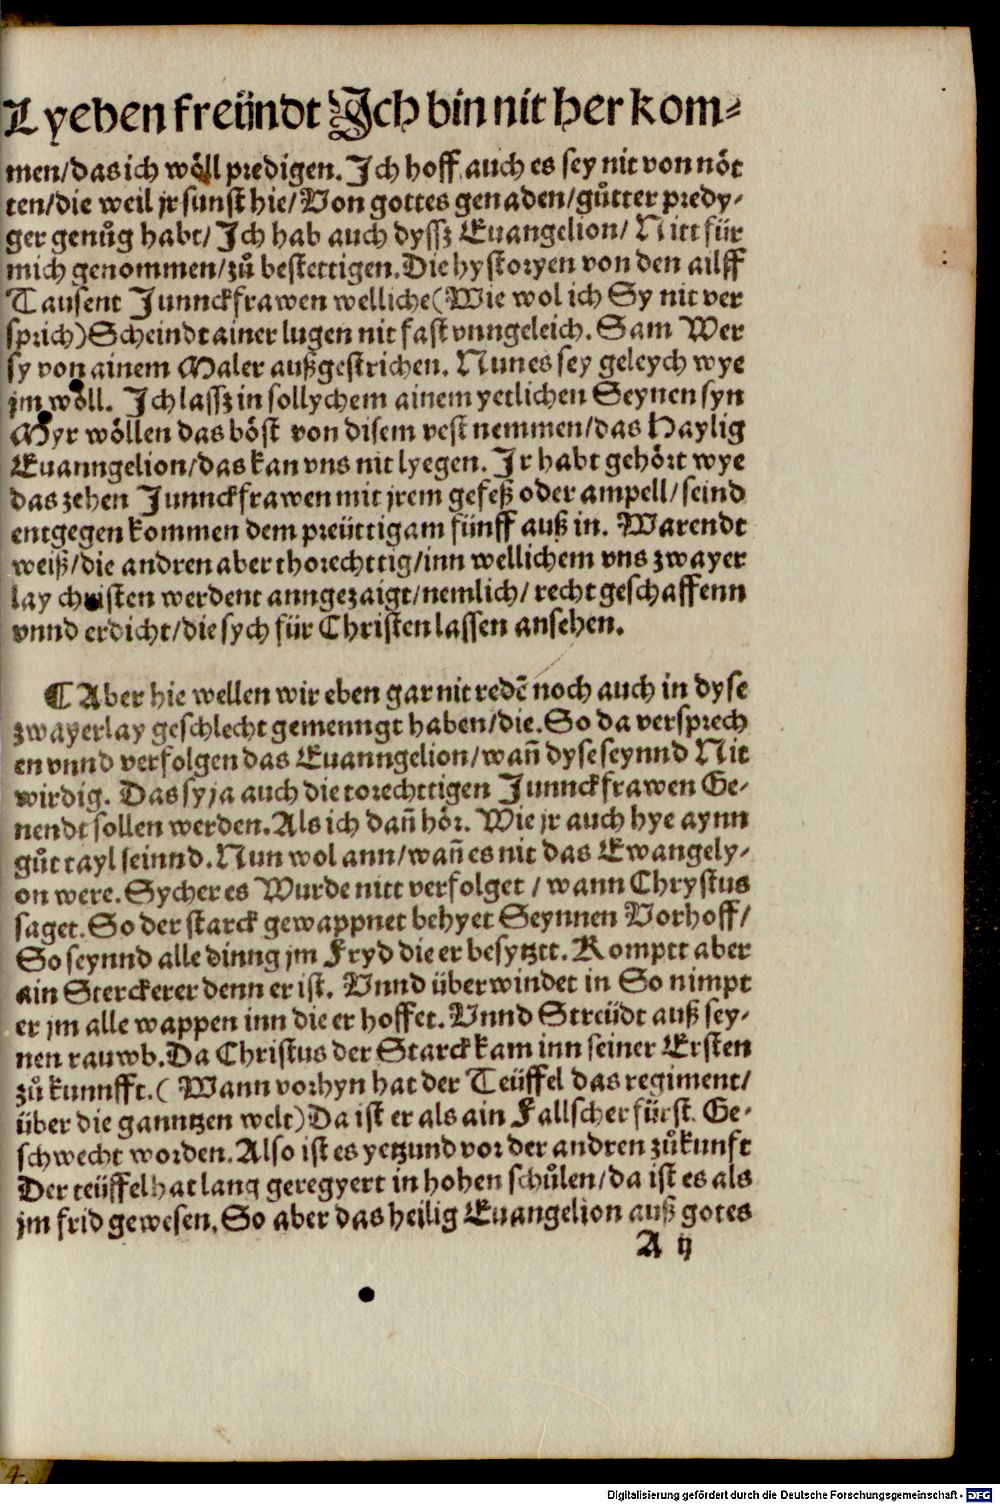 Lyeben freündt Ich bin nit her kom⸗
men/das ich wöll predigen. Ich hoff auch es sey nit von nöt
ten/die weil jr sunst hie/Von gottes genaden/gůtter predy⸗
ger genůg habt/Ich hab auch dyssz Euangelion/Nitt für
mich genommen/zů bestettigen. Die hystoryen von den ailff
Tausent Junnckfrawen welliche (Wie wol ich Sy nit ver
sprich) Scheindt ainer lugen nit fast vnngeleich. Sam Wer
sy von ainem Maler außgestrichen. Nun es sey geleych wye
jm wöll. Ich lassz in sollychem ainem yetlichen Seynen syn
Myr wöllen das böst von disem vest nemmen/das Haylig
Euanngelion/das kan vns nit lyegen. Ir habt gehört wye
das zehen Junnckfrawen mit jrem gefeß oder ampell/seind
entgegen kommen dem preüttigam fünff auß in. Warendt
weiß/die andren aber thorechttig/inn wellichem vns zwayer
lay christen werdent anngezaigt/nemlich/recht geschaffenn
vnnd erdicht/die sych für Christen lassen ansehen.
¶ Aber hie wellen wir eben gar nit redē noch auch in dyse
zwayerlay geschlecht gemenngt haben/die. So da versprech
en vnnd verfolgen das Euanngelion/wañ dyse seynnd Nit
wirdig. Das sy ja auch die torechttigen Junnckfrawen Ge⸗
nendt sollen werden. Als ich dañ hör. Wie jr auch hye aynn
gůt tayl seinnd. Nun wol ann/wañ es nit das Ewangely⸗
on were. Sycher es Wurde nitt verfolget/wann Chrystus
saget. So der starck gewappnet behyet Seynnen Vorhoff/
So seynnd alle dinng jm Fryd die er besytztt. Komptt aber
ain Sterckerer denn er ist. Vnnd überwindet in So nimpt
er jm alle wappen inn die er hoffet. Vnnd Streüdt auß sey⸗
nen rauwb. Da Christus der Starck kam inn seiner Ersten
zů kunnfft. (Wann vorhyn hat der Teüffel das regiment/
über die ganntzen welt) Da ist er als ain Fallscher fürst. Ge⸗
schwecht worden. Also ist es yetzund vor der andren zůkunft
Der teüffel hat lang geregyert in hohen schůlen/da ist es als
jm frid gewesen. So aber das heilig Euangelion auß gotes
A ij
Digitalisierung gefördert durch die Deutsche Forschungsgemeinschaft - DFG